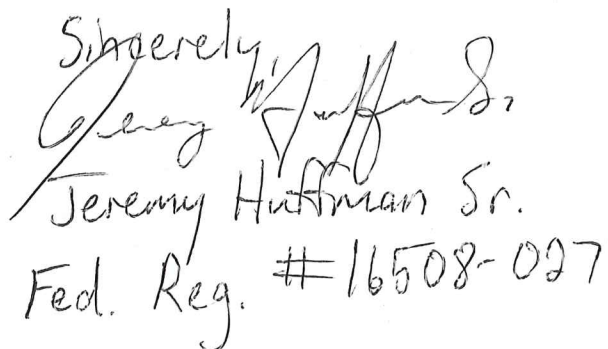 Sincerely,
Jeremy Huffman Sr.
Jeremy Huffman Sr.
Fed. Reg. #16508-027